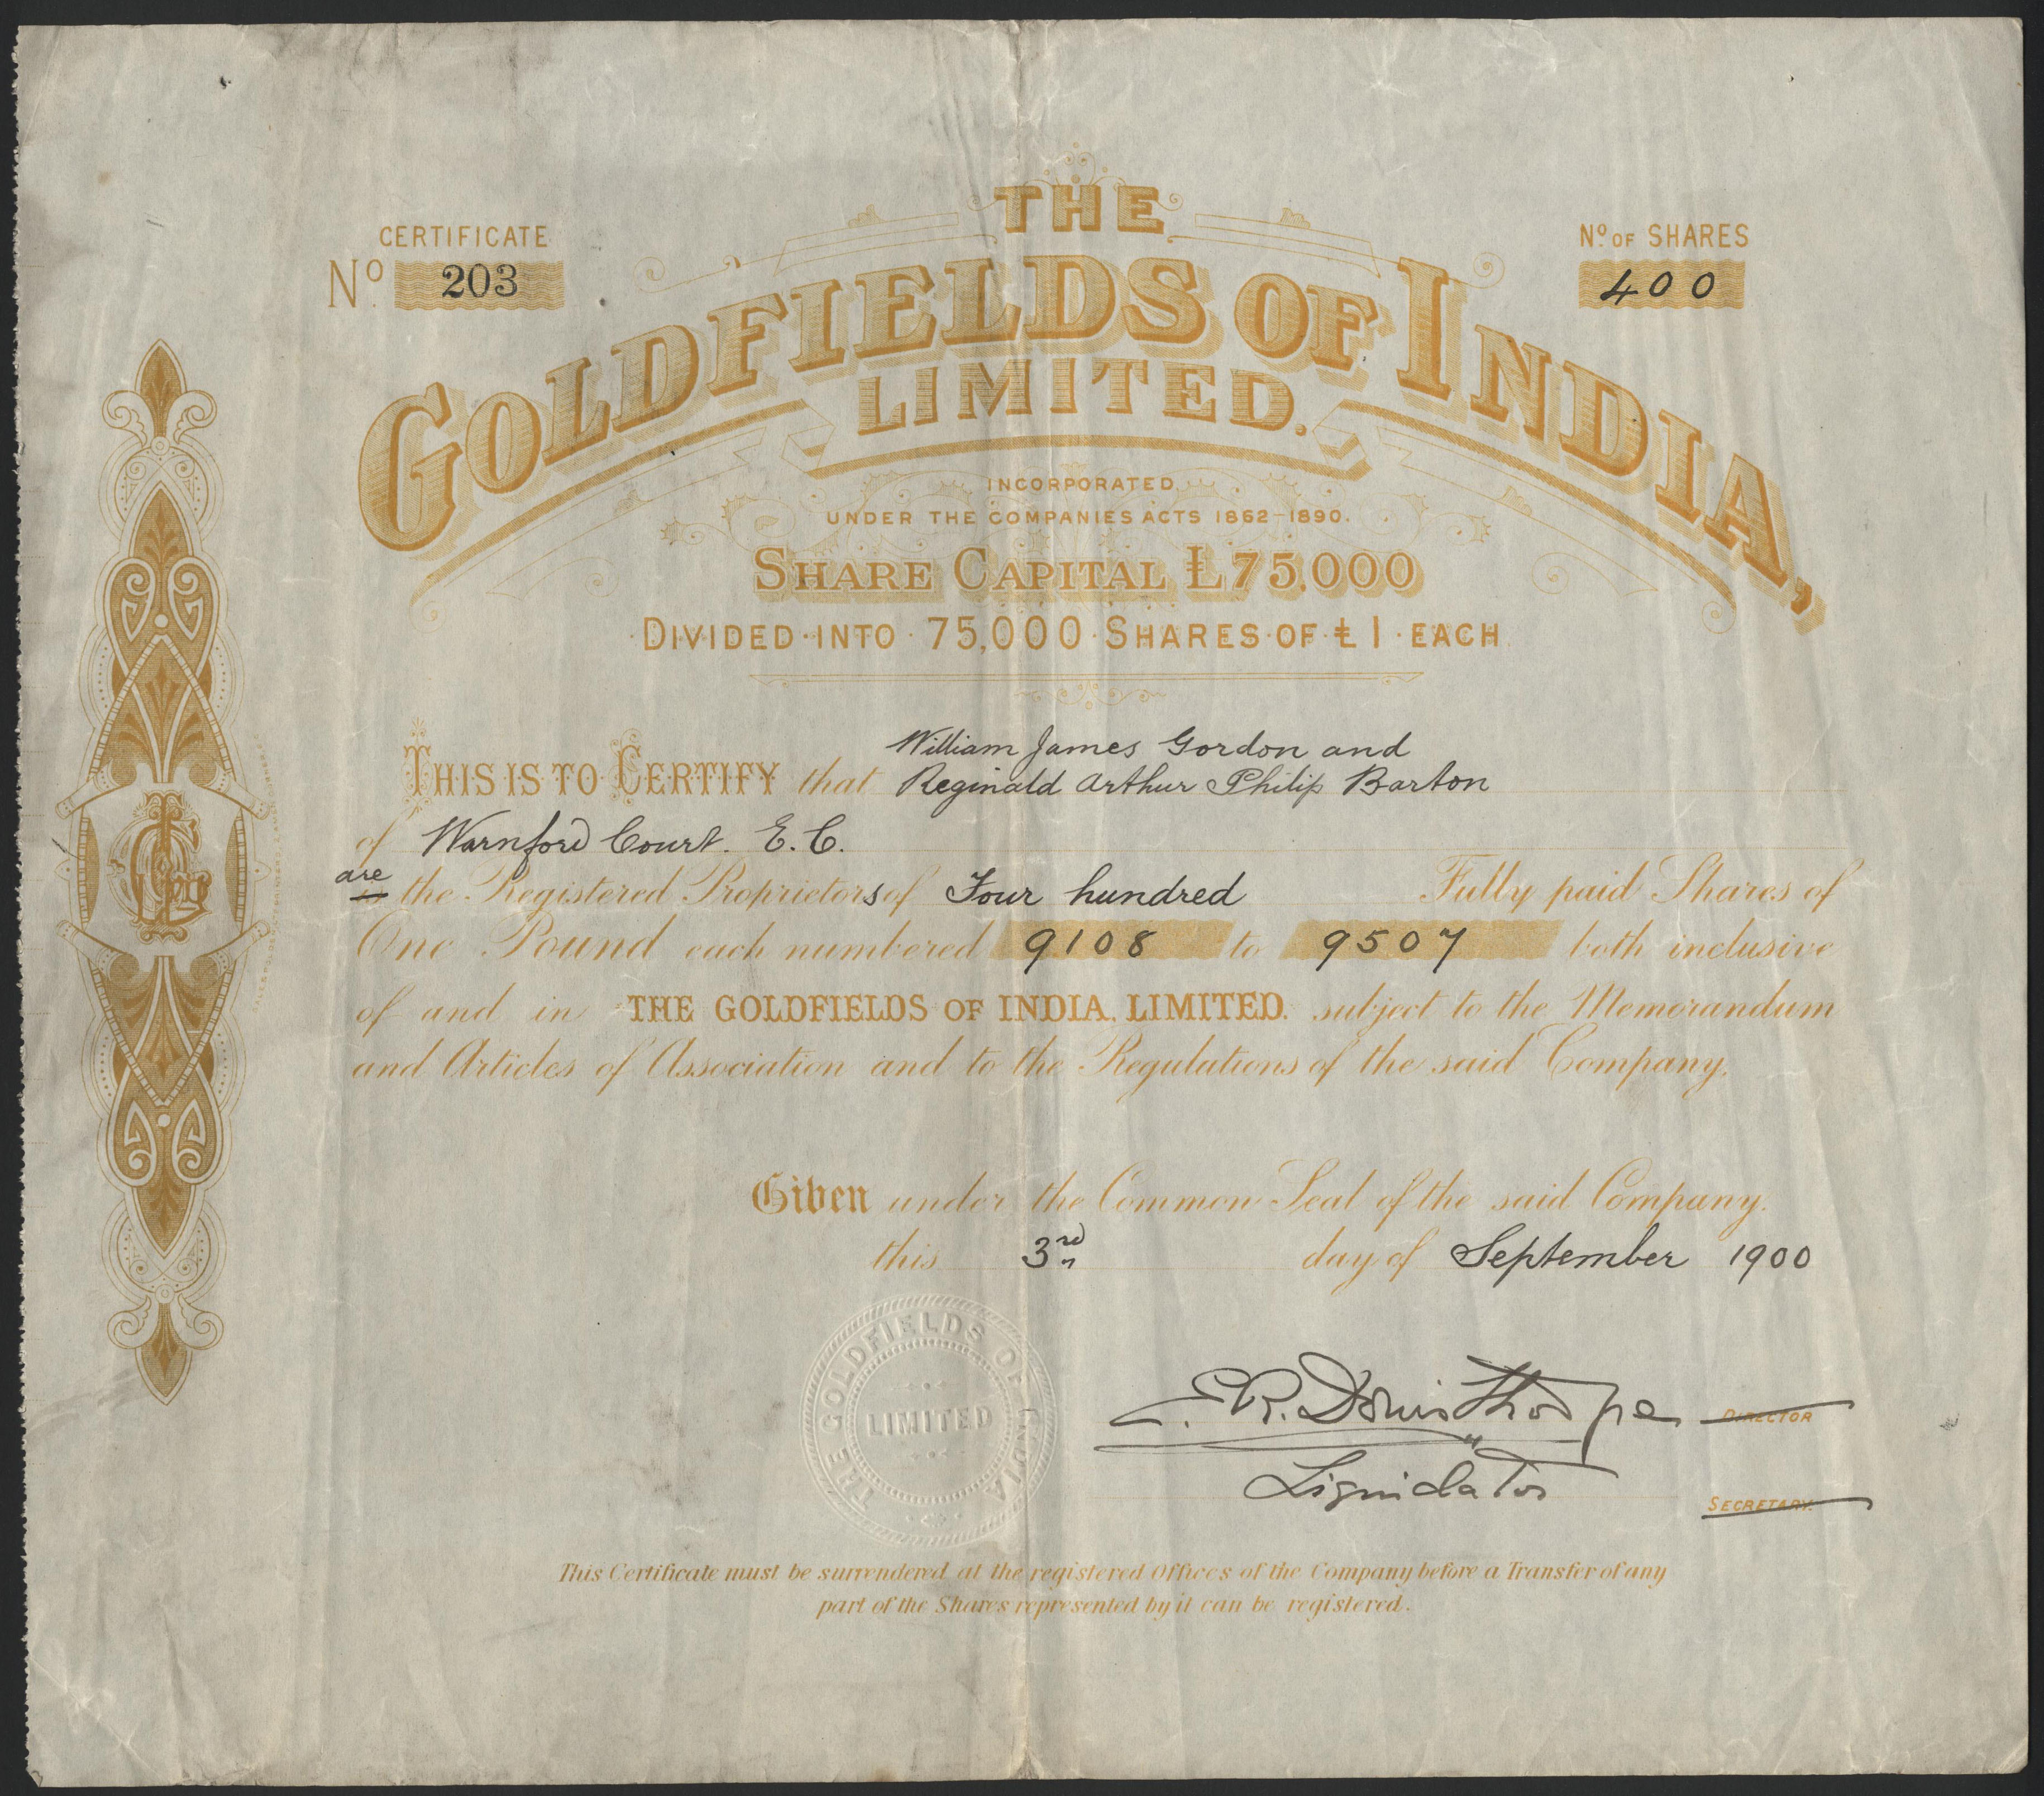 CERTIFICATE
Nº. 203
Nº. OF SHARES
400
THE
GOLDFIELDS OF INDIA,
LIMITED.
INCORPORATED
UNDER THE COMPANIES ACTS 1862-1890.
SHARE CAPITAL £75.000
DIVIDED·INTO·75,000·SHARES·OF·£1·EACH
William James Gordon and
THIS IS TO CERTIFY that Reginald Arthur Philip Barton
of Warnford Court. E.C.
are
is the Registered Proprietors of Four hundred Fully paid Shares of
One Pound each numbered 9108 to 9507 both inclusive
of and in THE GOLDFIELDS OF INDIA, LIMITED. subject to the Memorandum
and Articles of Association and to the Regulations of the said Company.
Given under the Common Seal of the said Company.
this 3rd day of September 1900
THE GOLDFIELDS OF INDIA
LIMITED
E. R. Donisthorpe DIRECTOR
Liquidator
SECRETARY.
This Certificate must be surrendered at the registered Offices of the Company before a Transfer of any
part of the Shares represented by it can be registered.